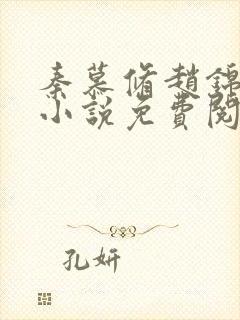 秦慕脩趙錦
小說免費閱
孔妍